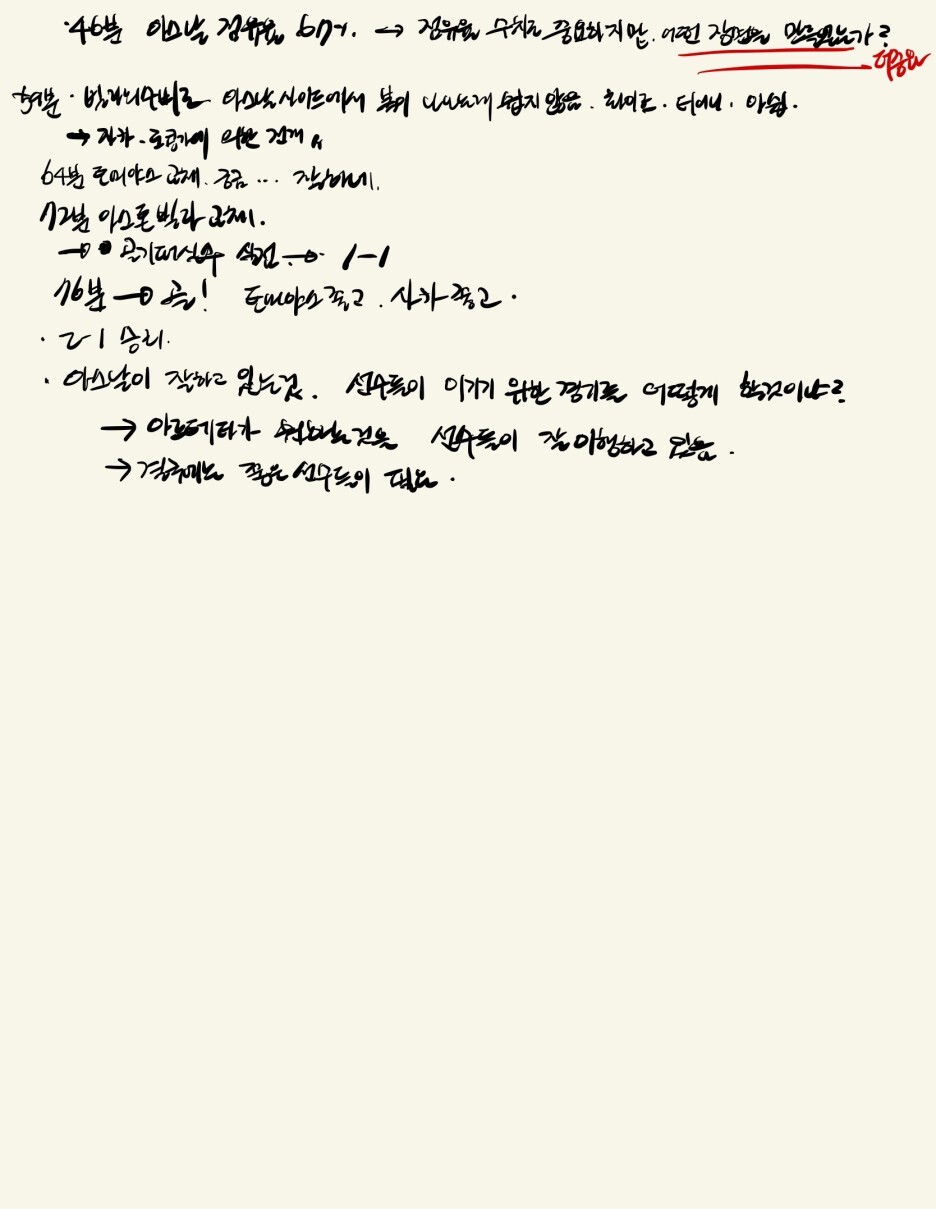 ·46분 아스날 점유율 67%. → 점유율 수치로 중요하지만. 어떤 장면을 만들었는가?
중요
59분 · 빌라의 수비로 아스날 사이드에서 볼이 나가는게 쉽지 않음. 화이트 · 티어니 · 아쉽.
→ 자카 · 토마스에 의한 전개
64분 토미야스 교체. 궁금 ... 잘하네.
72분 아스톤빌라 교체.
→ 골키퍼 실수 실점 → 1-1
76분 → 골! 토미야스 좋고. 사카 좋고.
· 2-1 승리.
· 아스날이 잘하고 있는것. 선수들이 이기기 위한 경기를 어떻게 할것이냐?
→ 아르테타가 원하는것을 선수들이 잘 이행하고 있음.
→ 결국에는 좋은 선수들이 필요.